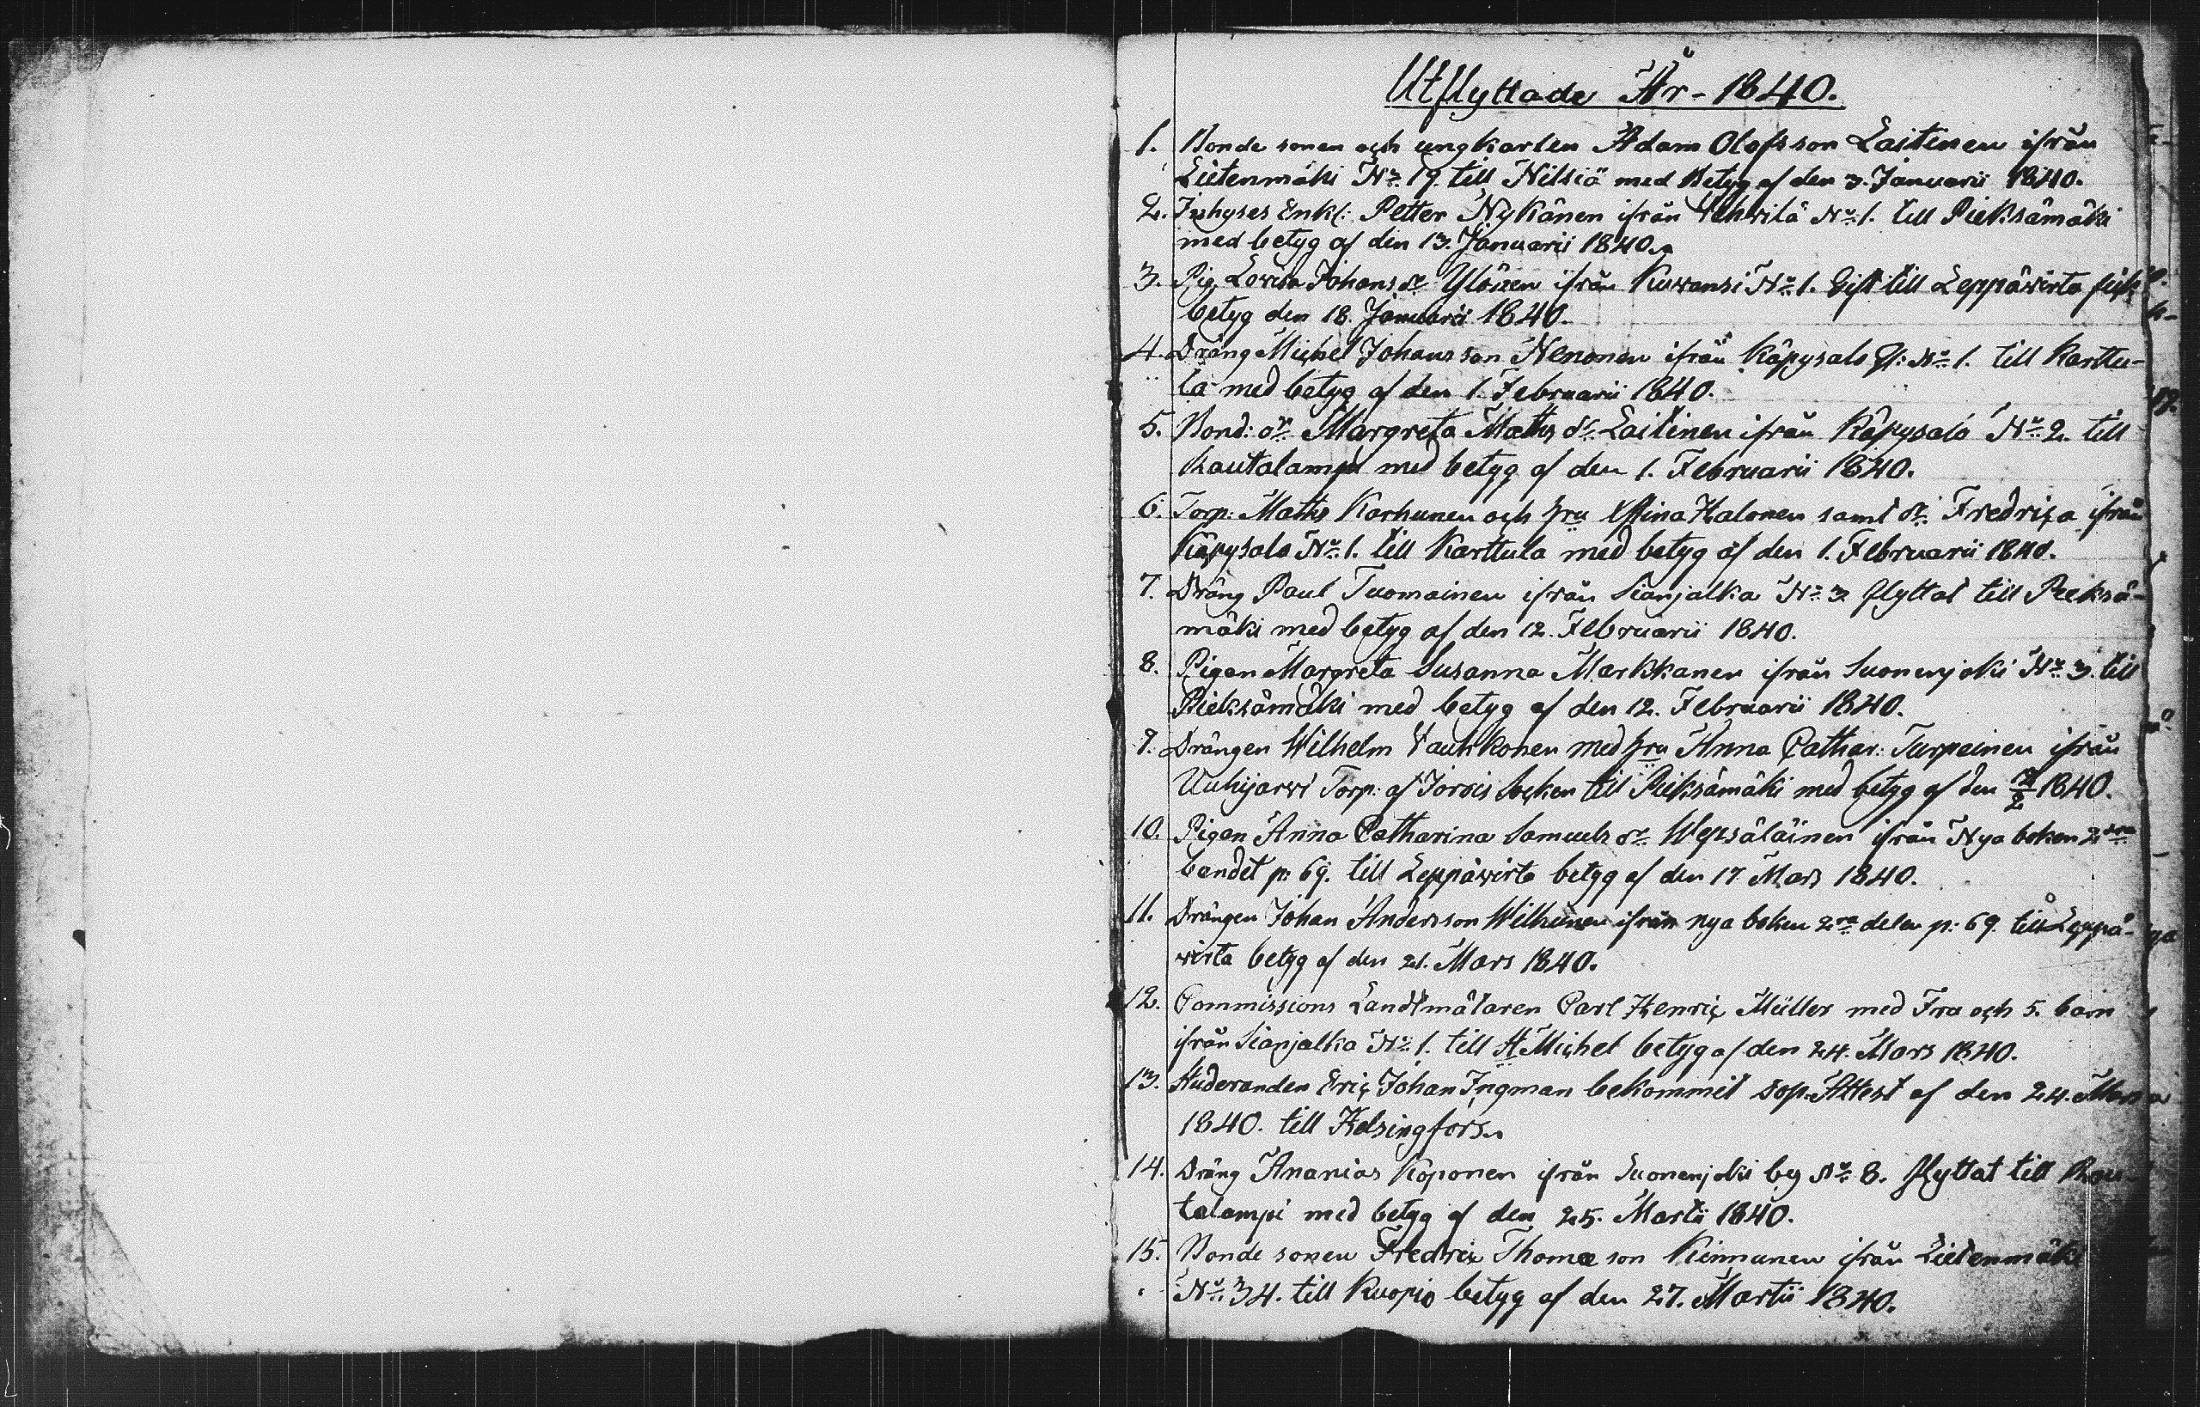 Utflyttade År - 1840.
1. Bonde sonen och ungkarlen Adam Olofsson Laitinen ifrån
Lietenmäki No. 19. till Nilsiä med Betyg af den 3. Januarii 1840.
2. Inhyses Enkl: Petter Nykänen ifrån Vehvilä No. 1. till Pieksämäki
med betyg af den 13. Januarii 1840.
3. Pig. Lovisa Johans dr Ylöinen ifrån Kuvansi No. 1. Gift till Leppävirta fick
betyg den 18. Januarii 1840.
4. Dräng Michel Johansson Nenonen ifrån Käpysalo No. 1. till Karttu-
la med betyg af den 1. Februarii 1840.
5. Bond: dr. Margreta Maths dr. Laitinen ifrån Käpysalo No. 2. till
Rautalampi med betyg af den 1. Februarii 1840.
6. Torp: Maths Karhunen och hru Stina Halonen samt dr. Fredrica ifrån
Käpysalo No. 1. till Karttula med betyg af den 1. Februarii 1840.
7. Dräng Paul Tuomainen ifrån Sianjalka No. 3. flyttat till Pieksä-
mäki med betyg af den 12. Februarii 1840.
8. Pigan Margreta Susanna Markkanen ifrån Suonenjoki No. 3. till
Pieksämäki med betyg af den 12. Februarii 1840.
9. Drängen Wilhelm Vauhkonen med hru Anna Cathar: Turpeinen ifrån
Uuhijarvi Torp: af Jorois Socken till Pieksämäki med betyg af den 1840.
10. Pigan Anna Catharina Samuels dr. Wepsäläinen ifrån Nya boken 2dra
bandet p: 69. till Leppävirta betyg af den 17 Mars 1840.
11. Drängen Johan Andersson Wilhunen ifrån nya boken 2ra delen p: 69. till Leppä-
virta betyg af den 21. Mars 1840.
12. Commissions Landtmätaren Carl Henric Müller med Fru och 5. barn
ifrån Sianjalka No. 1. till St Michel betyg af den 24. Mars 1840.
13. Studeranden Eric Johan Ingman bekommit Dop. Attest af den 24. Mars
1840. till Helsingfors.
14. Dräng Ananias Koponen ifrån Suonenjoki by No. 8. flyttat till Rau-
talampi med betyg af den 25. Martii 1840.
15. Bonde sonen Fredric Thomæ son Kinnunen ifrån Lietenmäki
No. 34. till Kuopio betyg af den 27. Martii 1840.